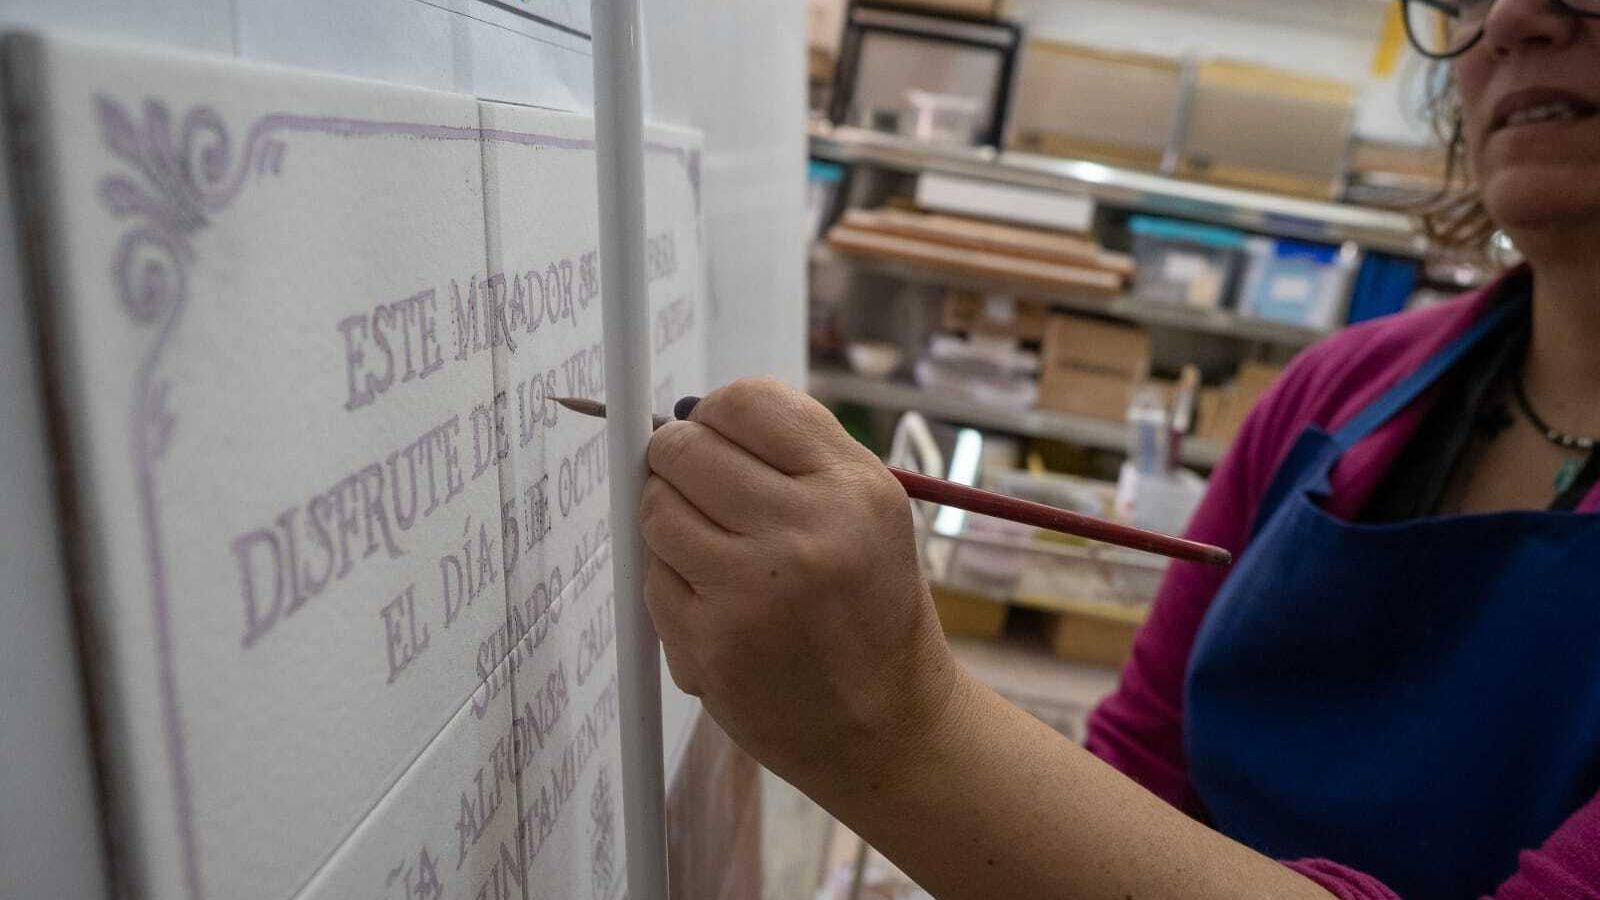 ESTE MIRADOR SE
DISFRUTE DE LOS VECI
EL DÍA 5 DE OCTU
SIENDO ALC
ÑA ALFONSA CALLE
UNTAMIENTO